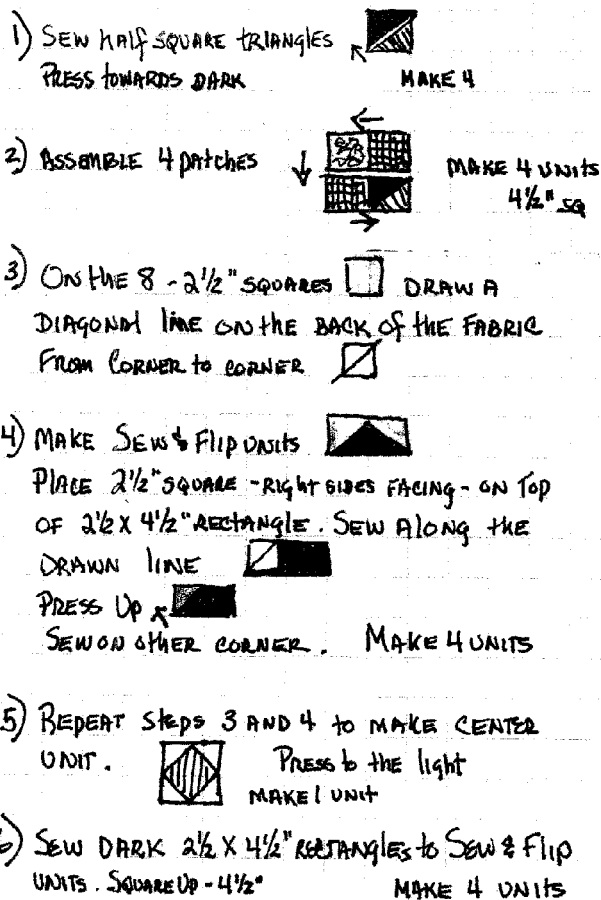 1) SEW HALF SQUARE TRIANGLES
PRESS TOWARDS DARK MAKE 4
2) ASSEMBLE 4 PATCHES MAKE 4 UNITS
4½" SQ
3) ON THE 8 - 2½" SQUARES DRAW A
DIAGONAL LINE ON THE BACK OF THE FABRIC
FROM CORNER TO CORNER
4) MAKE SEW & FLIP UNITS
PLACE 2½" SQUARE - RIGHT SIDES FACING - ON TOP
OF 2½ X 4½" RECTANGLE. SEW ALONG THE
DRAWN LINE
PRESS UP
SEW ON OTHER CORNER. MAKE 4 UNITS
5) REPEAT STEPS 3 AND 4 TO MAKE CENTER
UNIT. PRESS to the light
MAKE 1 UNIT
6) SEW DARK 2½ X 4½" RECTANGLES to SEW & FLIP
UNITS. SQUARE UP - 4½" MAKE 4 UNITS